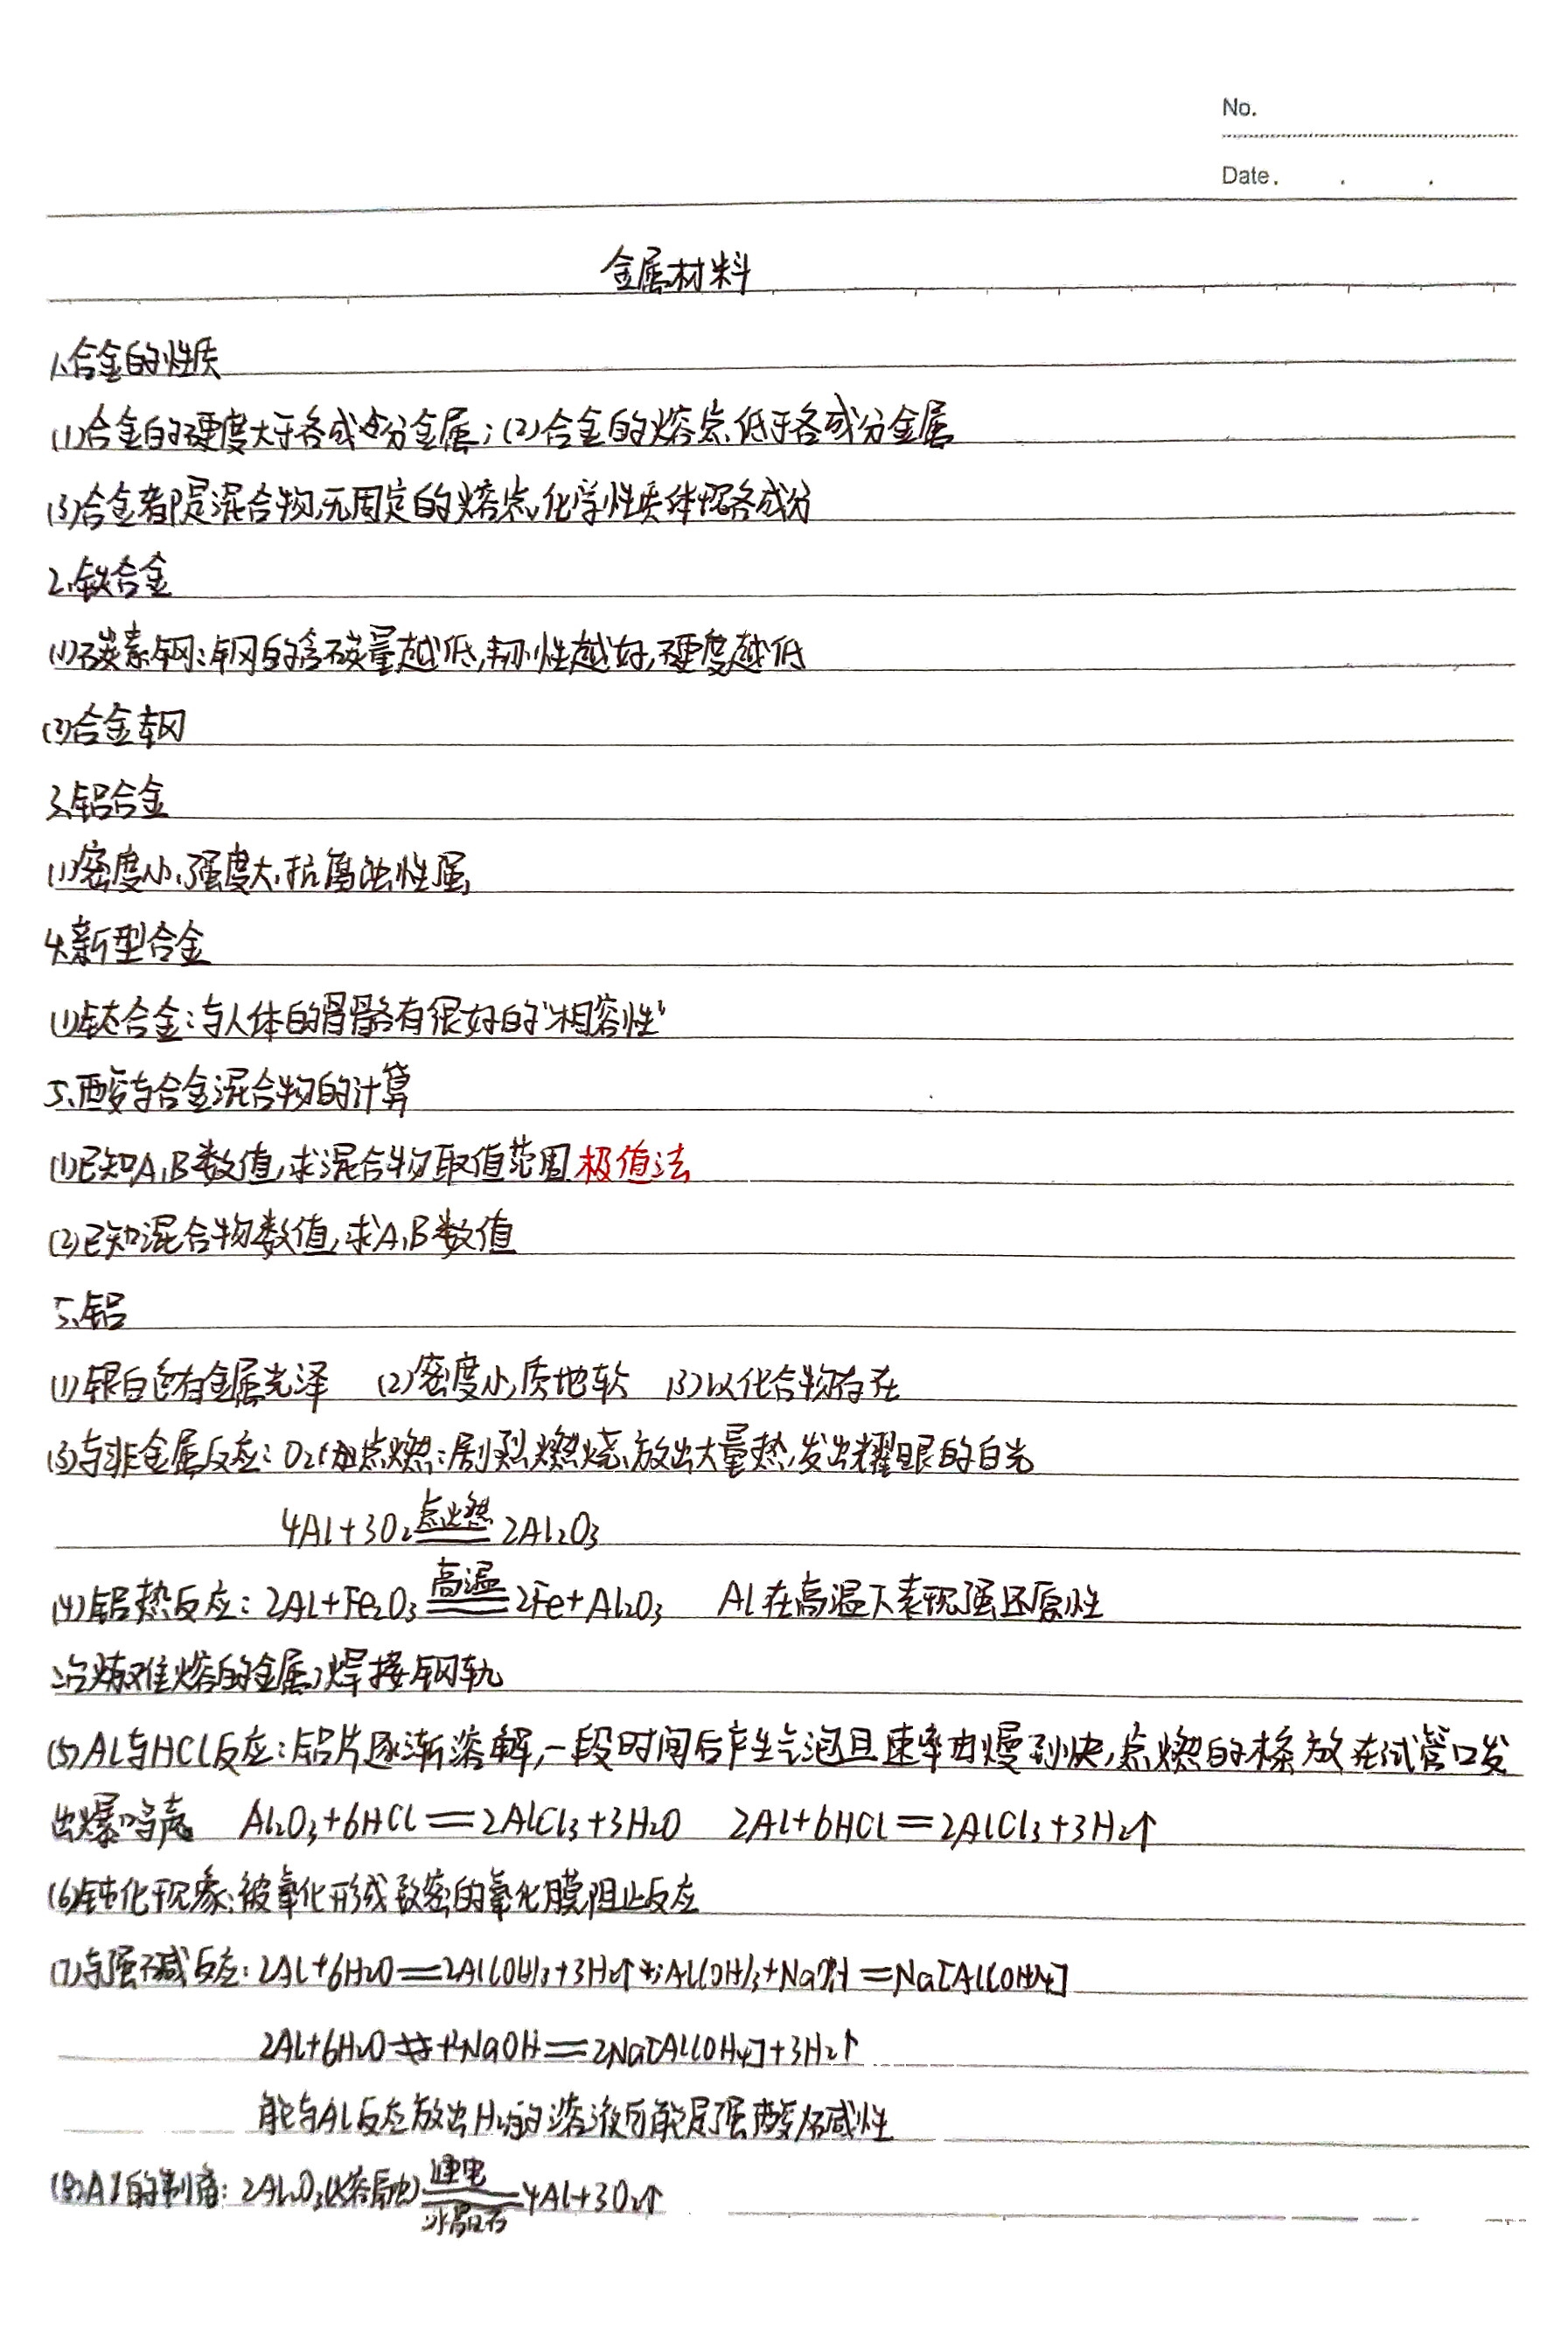 No.
Date.
金属材料
1、合金的性质
(1)合金的硬度大于各成分金属；(2)合金的熔点低于各成分金属
(3)合金都是混合物，无固定的熔点，化学性质体现各成分
2、铁合金
(1)碳素钢：钢的含碳量越低，韧性越好，硬度越低
(2)合金钢
3、铝合金
(1)密度小、强度大、抗腐蚀性强
4、新型合金
(1)钛合金：与人体的骨骼有很好的"相容性"
5、酸与合金混合物的计算
(1)已知A、B数值，求混合物取值范围 极值法
(2)已知混合物数值，求A、B数值
5、铝
(1)银白色有金属光泽 (2)密度小，质地软 (3)以化合物存在
(3)与非金属反应：O₂ 点燃：剧烈燃烧、放出大量热，发出耀眼的白光
4Al+3O₂ 点燃══ 2Al₂O₃
(4)铝热反应：2Al+Fe₂O₃ 高温══ 2Fe+Al₂O₃ Al在高温下表现强还原性
冶炼难熔的金属，焊接钢轨
(5)Al与HCl反应：铝片逐渐溶解，一段时间后产生气泡且速率由慢到快，点燃的木条放在试管口发
出爆鸣声 Al₂O₃+6HCl══2AlCl₃+3H₂O 2Al+6HCl══2AlCl₃+3H₂↑
(6)钝化现象：被氧化形成致密的氧化膜，阻止反应
(7)与强碱反应：2Al+6H₂O══2Al(OH)₃+3H₂↑；Al(OH)₃+NaOH══Na[Al(OH)₄]
2Al+6H₂O+2NaOH══2Na[Al(OH₄]+3H₂↑
能与Al反应放出H₂的溶液可能是强酸/碱性
(8)Al的制备：2Al₂O₃(熔融) 通电══冰晶石 4Al+3O₂↑